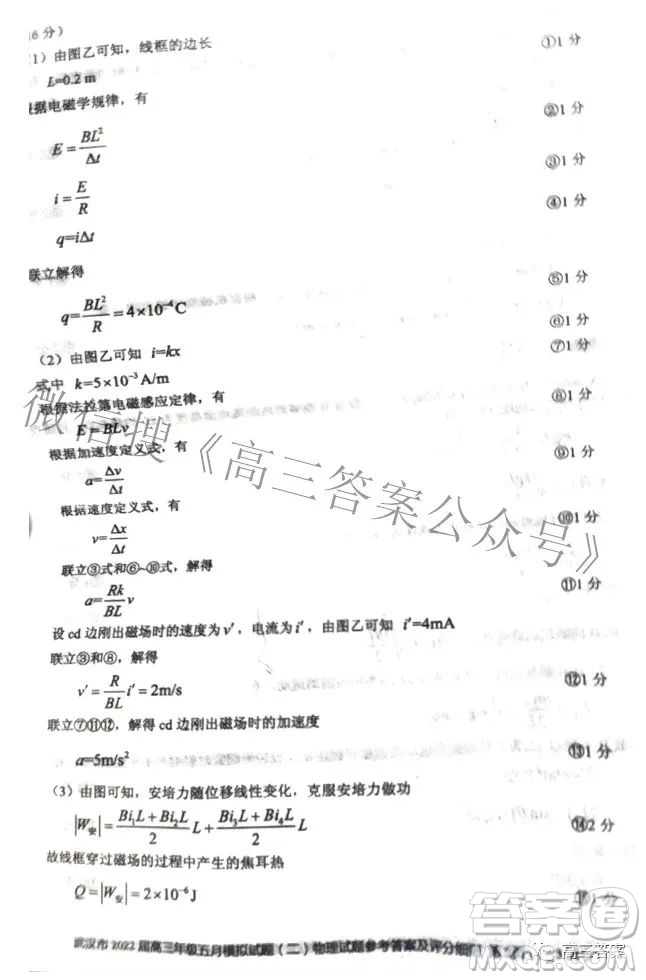 6分）
(1）由图乙可知，线框的边长 ①1分
L=0.2 m
根据电磁学规律，有
E=BL²/Δt ②1分
i=E/R ③1分
q=iΔt ④1分
联立解得
q=BL²/R=4×10⁻⁴C ⑤1分
（2）由图乙可知 i=kx ⑥1分
式中 k=5×10⁻³A/m ⑦1分
根据法拉第电磁感应定律，有
E=BLv ⑧1分
根据加速度定义式，有
a=Δv/Δt ⑨1分
根据速度定义式，有
v=Δx/Δt ⑩1分
联立③式和⑥~⑩式，解得
a=Rk/BL v ⑪1分
设cd边刚出磁场时的速度为v′，电流为i′，由图乙可知 i′=4mA
联立③和⑧，解得
v′=R/BL i′=2m/s ⑫1分
联立⑦⑪⑫，解得cd边刚出磁场时的加速度
a=5m/s² ⑬1分
（3）由图可知，安培力随位移线性变化，克服安培力做功
|W安|=(Bi₁L+Bi₂L)/2 L+(Bi₃L+Bi₄L)/2 L ⑭2分
故线框穿过磁场的过程中产生的焦耳热
Q=|W安|=2×10⁻⁶J 1分
武汉市2022届高三年级五月模拟试题（二）物理试题参考答案及评分细则
微信搜《高三答案公众号》
答案圈
高三答案